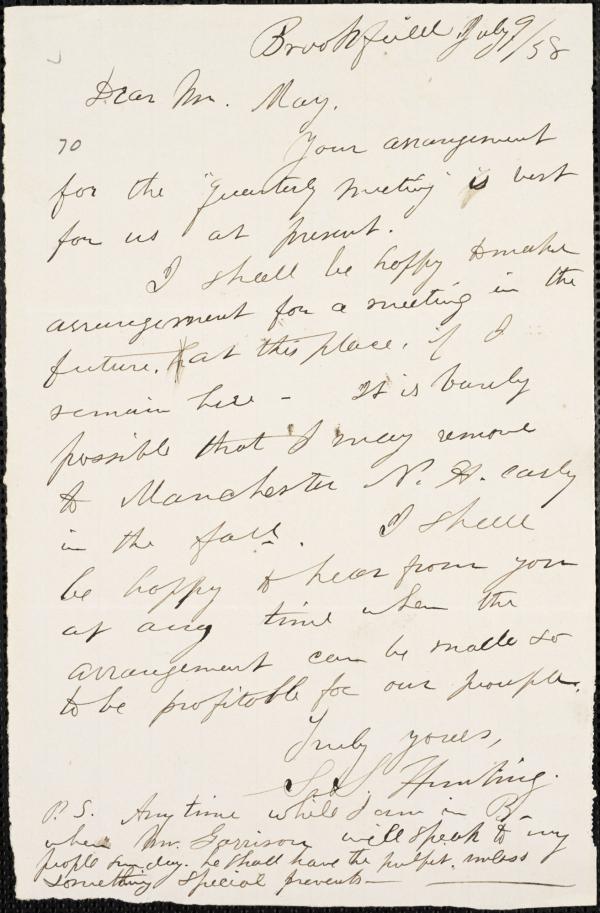 Brookfield July 9/58
Dear Mr. May.
70
Your arrangement
for the "quarterly meeting" is best
for us at present.
I shall be happy to make
arrangement for a meeting in the
future, at this place, if I
remain here - It is barely
possible that I may remove
to Manchester N. H. early
in the fall. I shall
be happy to hear from you
at any time when the
arrangement can be made so
to be profitable for our people.
Truly yours,
S. S. Hunting.
P. S. Any time while I am in B-
when Mr. Garrison will speak to my
people Sunday. he shall have the pulpit, unless
something special prevents-